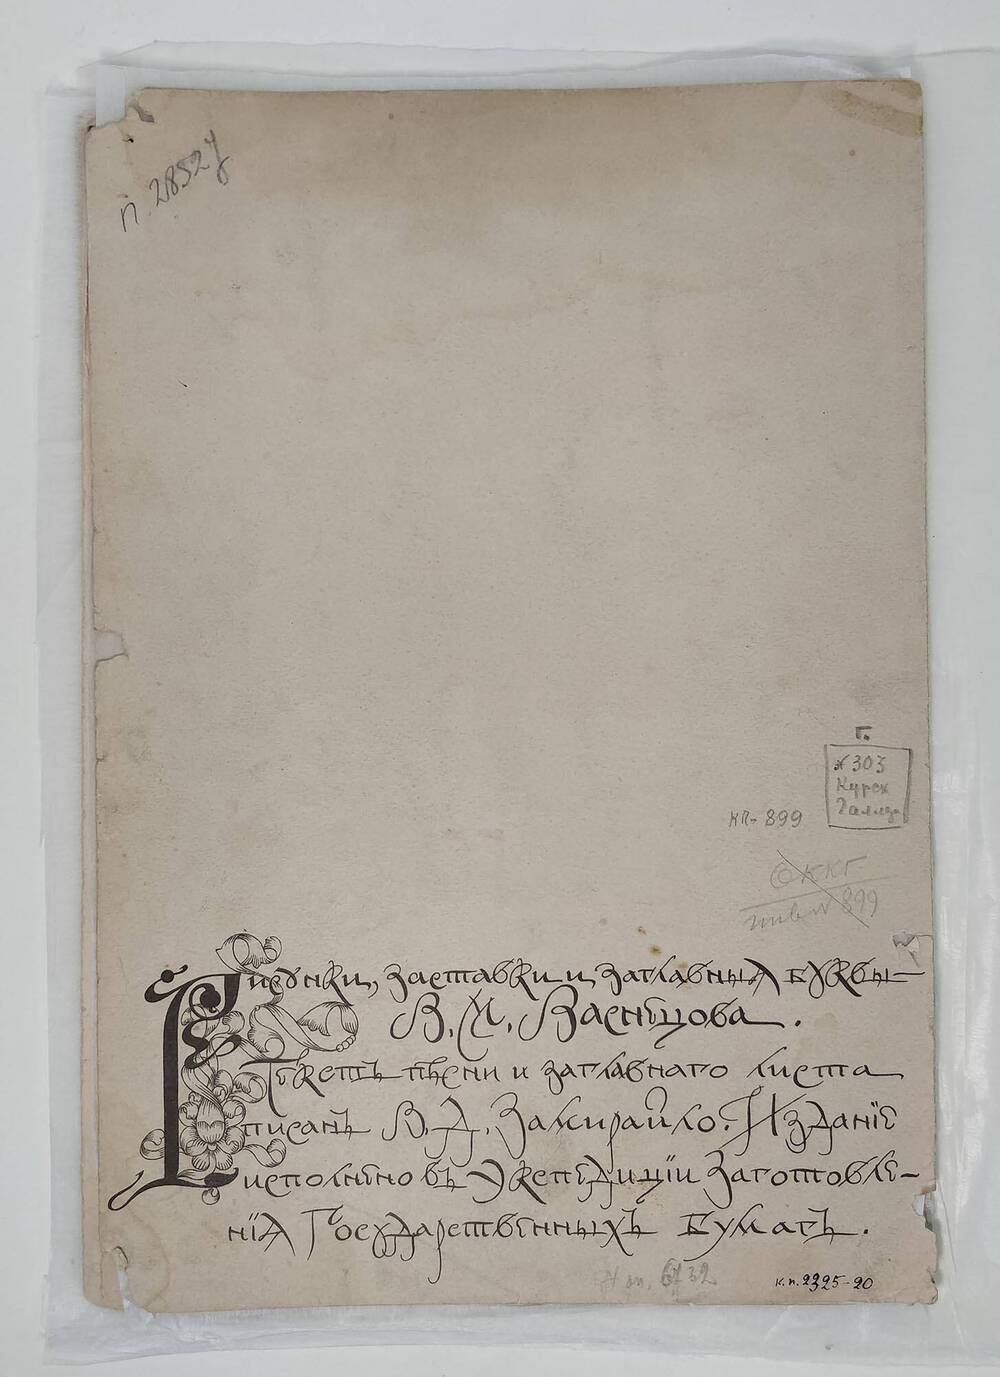 п. 28527
Г.
№ 303
Курск
Галлер
КП-899
ККГ
инв № 899
Рисунки, заставки и заглавныя буквы
В. М. Васнецова.
Текстъ пѣсни и заглавнаго листа
писанъ В. Д. Замирайло. Изданіе
исполнено въ Экспедиціи Заготовле-
нія Государственныхъ Бумагъ.
6732
к.п. 2325-20